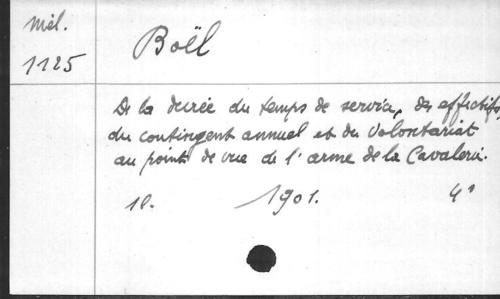 Mél.
1125
Boël
De la durée du temps de service, des effectifs,
du contingent annuel et du Volontariat
au point de vue de l'arme de la Cavalerie.
1901. 4°